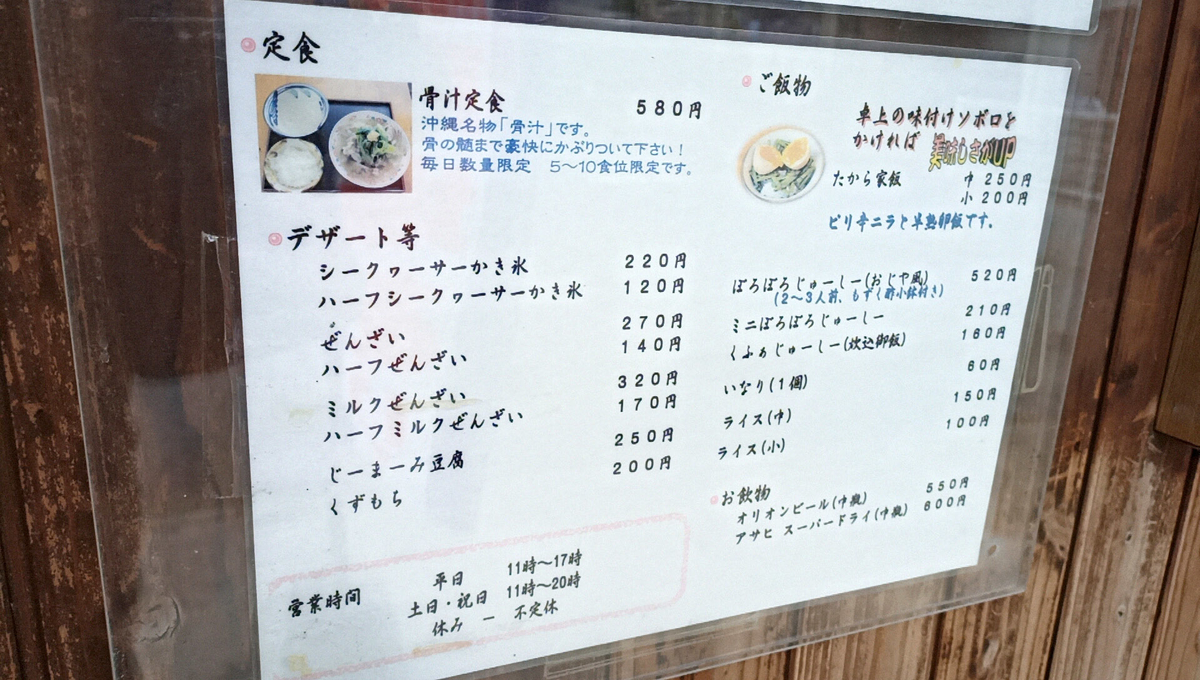 定食
骨汁定食 580円
沖縄名物「骨汁」です。
骨の髄まで豪快にかぶりついて下さい！
毎日数量限定 5～10食位限定です。
デザート等
シークヮーサーかき氷 220円
ハーフシークヮーサーかき氷 120円
ぜんざい 270円
ハーフぜんざい 140円
ミルクぜんざい 320円
ハーフミルクぜんざい 170円
じーまーみ豆腐 250円
くずもち 200円
営業時間 平日 11時～17時
土日・祝日 11時～20時
休み ー 不定休
ご飯物
卓上の味付けソボロを
かければ 美味しさがUP
たから家飯 中 250円
小 200円
ピリ辛ニラと半熟卵飯です。
ぼろぼろじゅーしー(おじや風) 520円
(2～3人前、もずく酢小鉢付き)
ミニぼろぼろじゅーしー 210円
くふぁじゅーしー(炊込御飯) 160円
いなり(1個) 60円
ライス(中) 150円
ライス(小) 100円
お飲物
オリオンビール(中瓶) 550円
アサヒ スーパードライ(中瓶) 600円